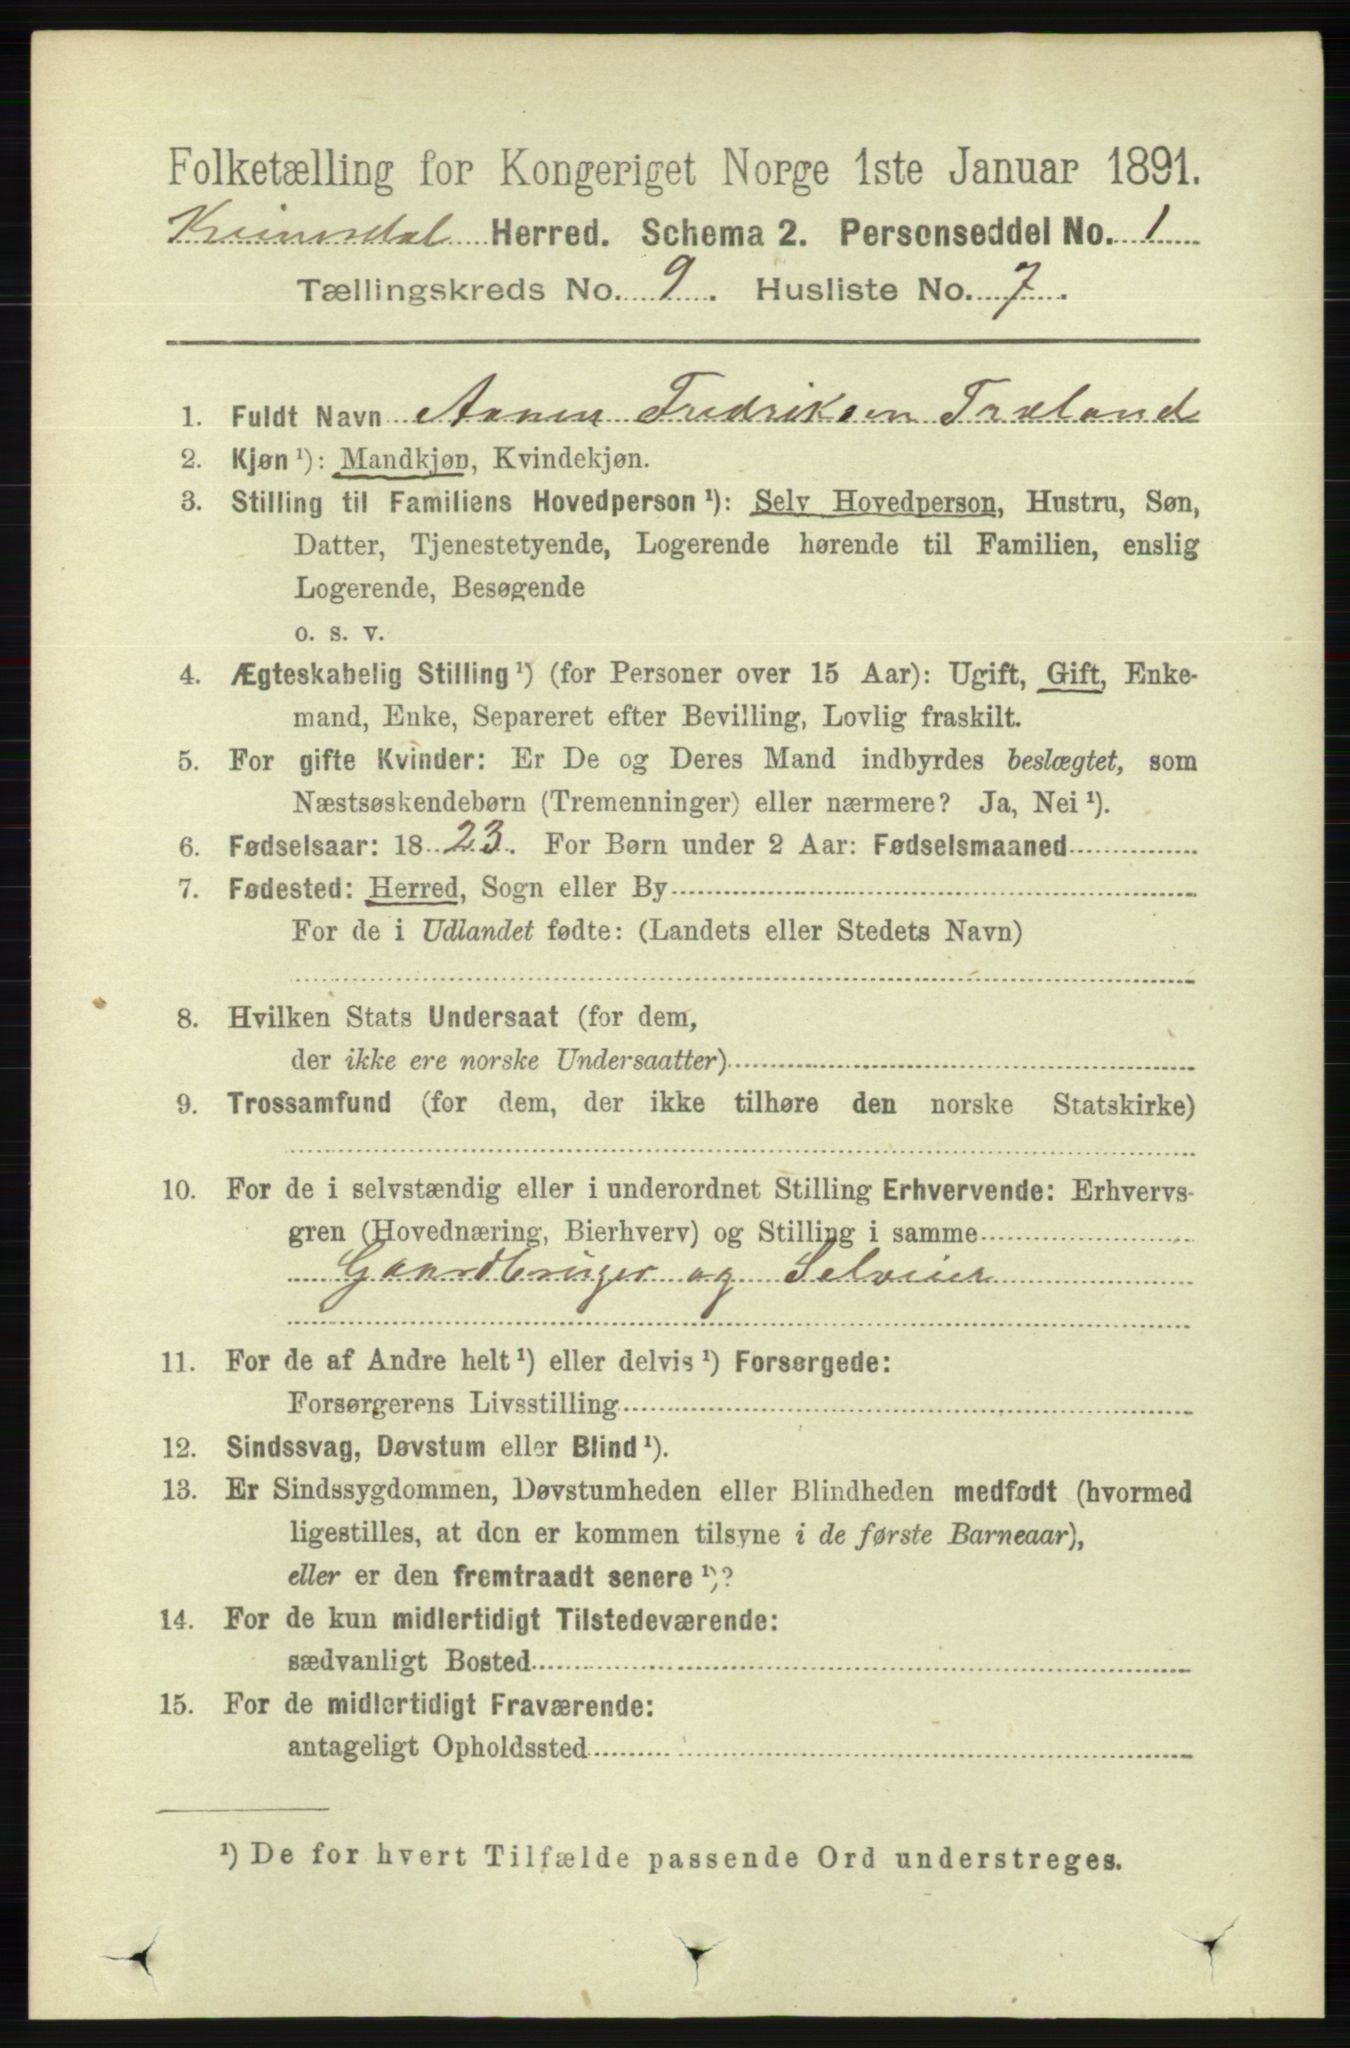 Folketælling for Kongeriget Norge 1ste Januar 1891.
Kvinesdal Herred. Schema 2. Personseddel No. 1
Tællingskreds No. 9. Husliste No. 7.
1. Fuldt Navn Aanen Fredriksen Træland
2. Kjøn ¹): Mandkjøn, Kvindekjøn.
3. Stilling til Familiens Hovedperson ¹): Selv Hovedperson, Hustru, Søn,
Datter, Tjenestetyende, Logerende hørende til Familien, enslig
Logerende, Besøgende
o. s. v.
4. Ægteskabelig Stilling ¹) (for Personer over 15 Aar): Ugift, Gift, Enke-
mand, Enke, Separeret efter Bevilling, Lovlig fraskilt.
5. For gifte Kvinder: Er De og Deres Mand indbyrdes beslægtet, som
Næstsøskendebørn (Tremenninger) eller nærmere? Ja, Nei ¹).
6. Fødselsaar: 1823. For Børn under 2 Aar: Fødselsmaaned
7. Fødested: Herred, Sogn eller By
For de i Udlandet fødte: (Landets eller Stedets Navn)
8. Hvilken Stats Undersaat (for dem,
der ikke ere norske Undersaatter)
9. Trossamfund (for dem, der ikke tilhøre den norske Statskirke)
10. For de i selvstændig eller i underordnet Stilling Erhvervende: Erhvervs-
gren (Hovednæring, Bierhverv) og Stilling i samme
Gaardbruger og Selveier
11. For de af Andre helt ¹) eller delvis ¹) Forsørgede:
Forsørgerens Livsstilling
12. Sindssvag, Døvstum eller Blind ¹).
13. Er Sindssygdommen, Døvstumheden eller Blindheden medfødt (hvormed
ligestilles, at den er kommen tilsyne i de første Barneaar),
eller er den fremtraadt senere ¹)?
14. For de kun midlertidigt Tilstedeværende:
sædvanligt Bosted
15. For de midlertidigt Fraværende:
antageligt Opholdssted
¹) De for hvert Tilfælde passende Ord understreges.